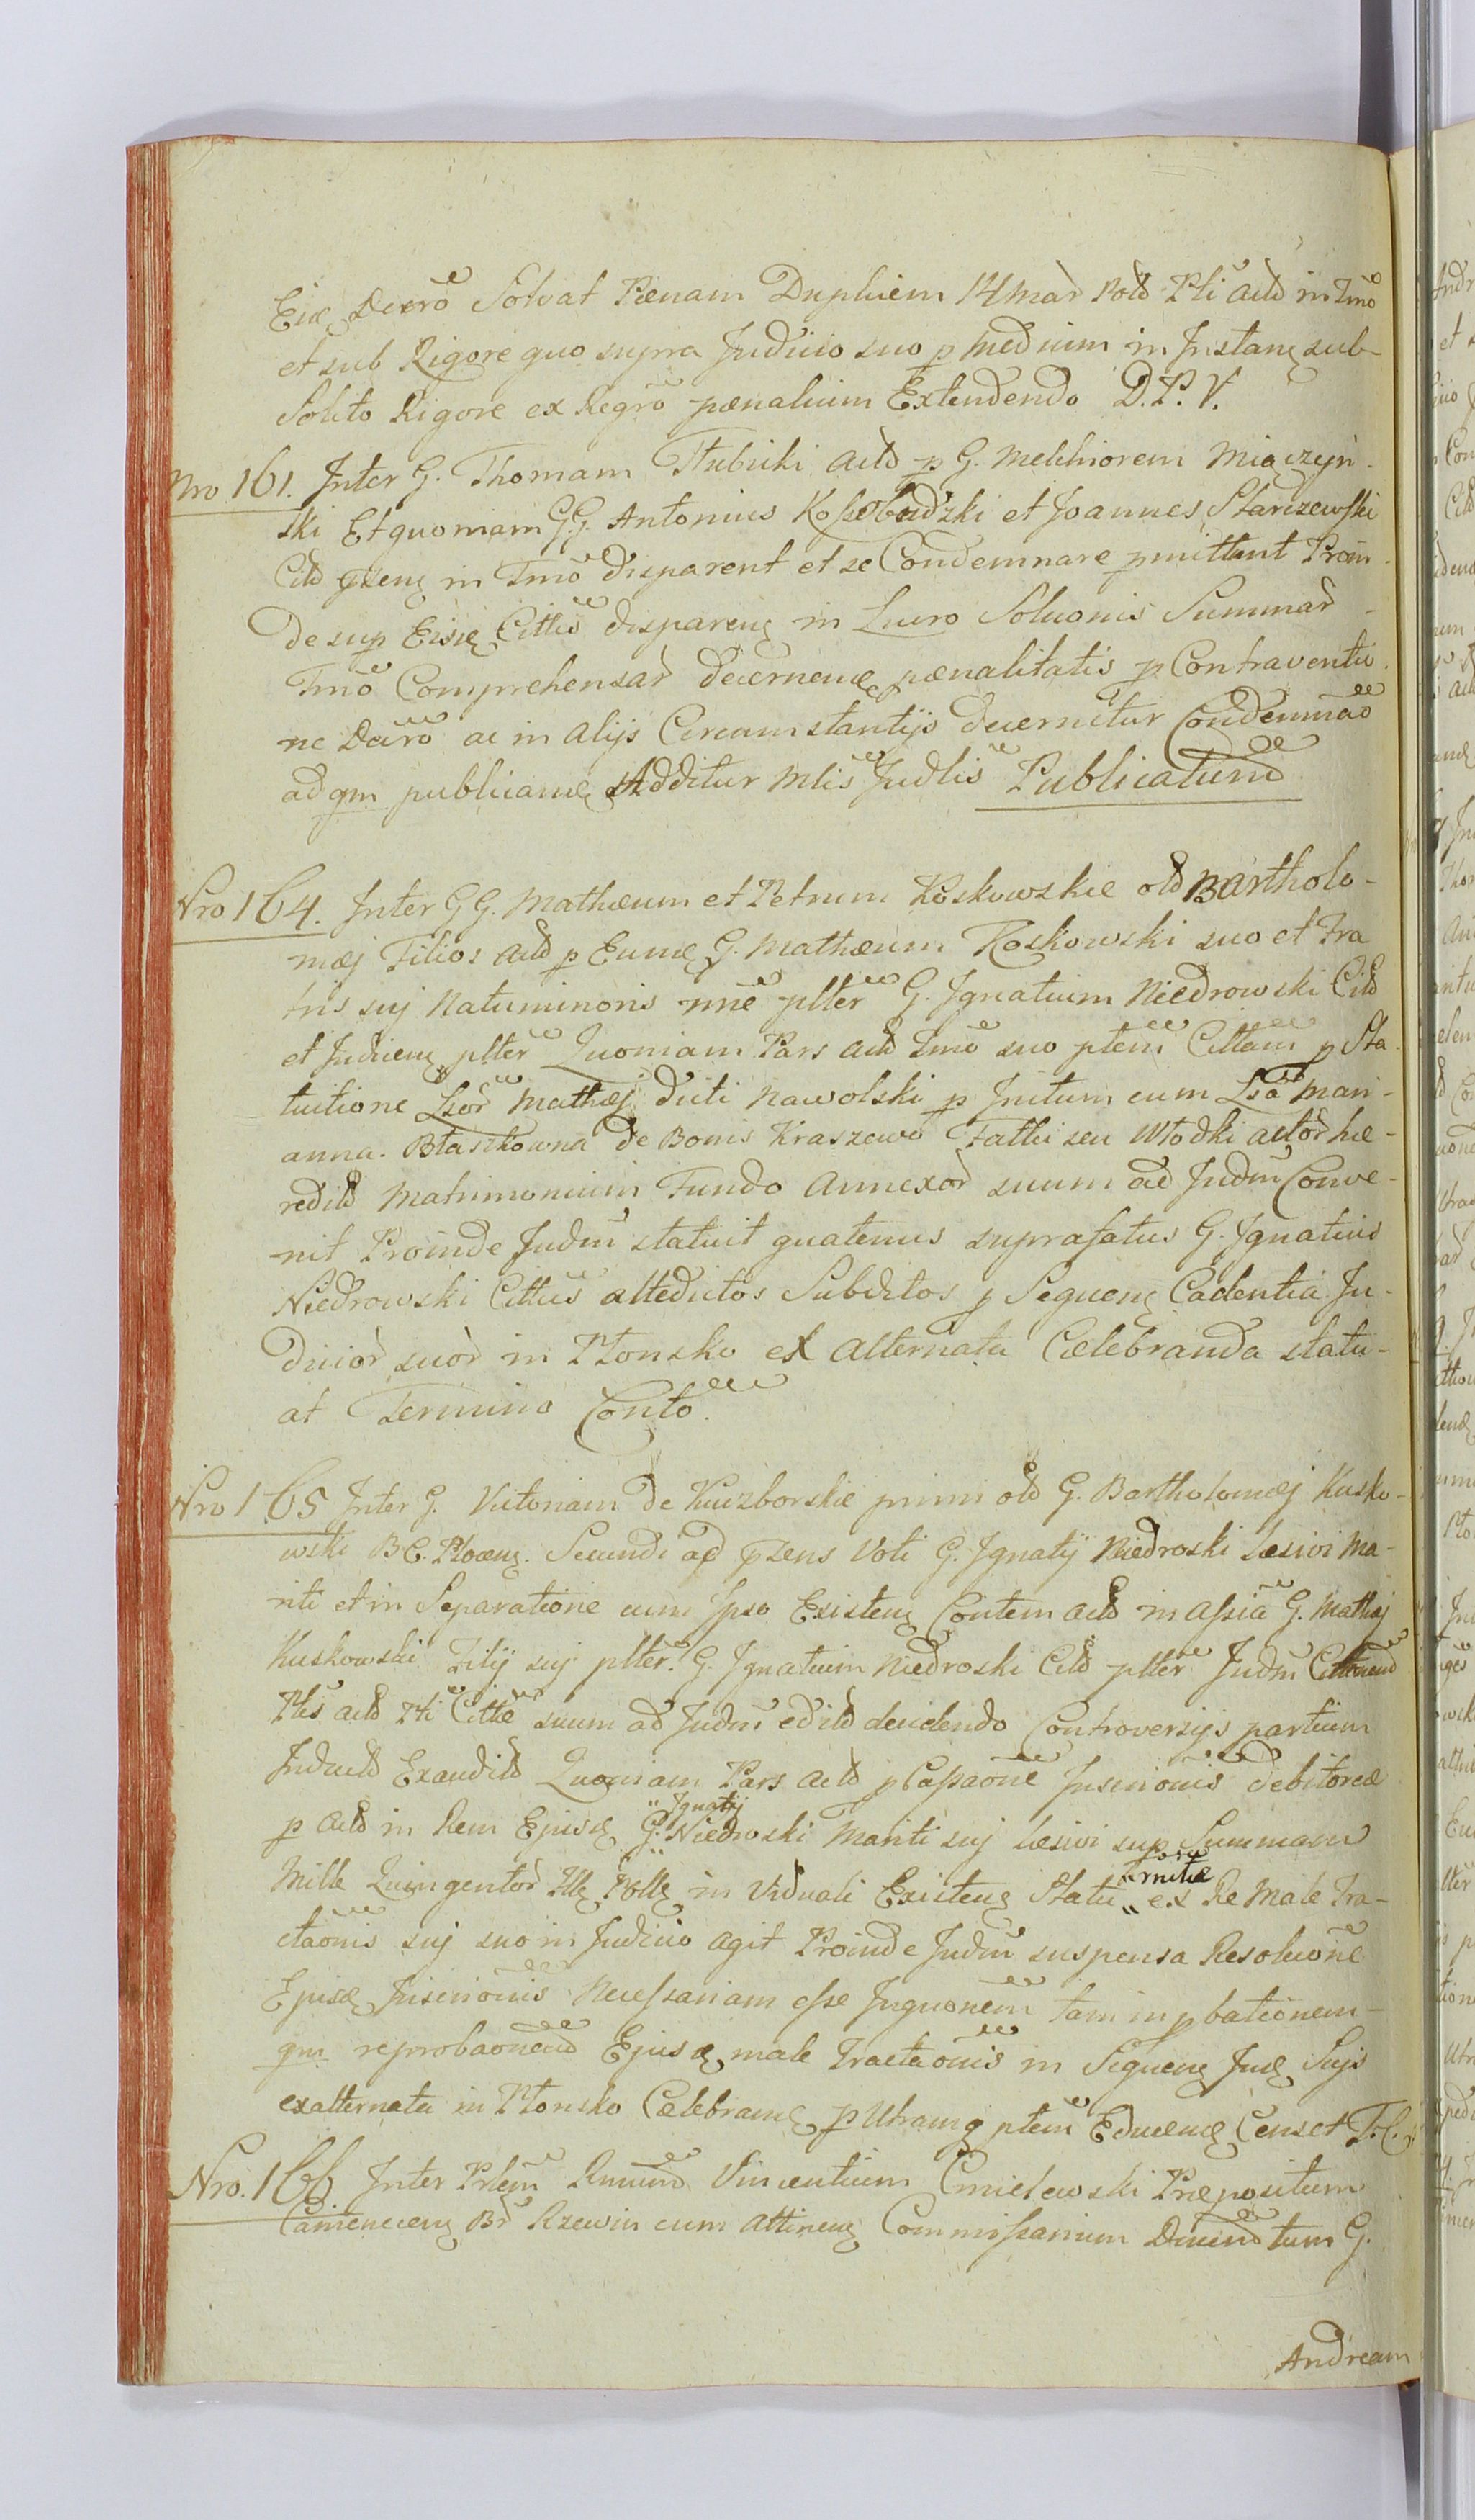 Eisd Decrõ Solvat Pænam Duplicem 14 Mar Pold Pti Actd in Tmõ
et sub Rigore quo supra Judicio suo p Medium in Instanę sub
Solito Rigore ex Regrõ pænalium Extendendo D.P.V.
Nro 161. Inter G. Thomam Tłubicki Actd p G. Melchiorem Miączyń-
ski Et quoniam GG. Antonius Kossobudzki et Joannes Starczewski
Citd pseng in Tmõ disparent et se Condemnare pmittunt Proin-
de sup Eisd Cittis dispareng in Lucro Soluonis Summar
Tmõ Comprehensar decernend pænalitatis p Contraventio-
ne Decrõ ac in alijs Circumstantijs decernitur Condemnaõ
ad qm publicand Additur Mlis Judlis Publicatum
Nro 164. Inter GG. Mathæum et Petrum Koskowskie old Bartholo-
mæj Filios Actd p Eund G. Mathæum Koskowski suo et Fra
tris suj Natuminoris nne plter G. Ignatium Niedrowski Citd
et Judiceng plter Quoniam Pars Actd Tmõ suo ptem Cittam p Sta
tuitione Lsor Mathæj dicti Nawolski p Initum cum Lsa Mari-
anna Błaszkowna de Bonis Kraszewo Falki seu Włodki actor hæ-
redit Matrimonium Fundo Annexor suum ad Judm Conve-
nit Proinde Judm statuit quatenus suprafatus G. Ignatius
Niedrowski Cittus attedictos Subditos p Sequeng Cadentia Ju-
dicior suor in Płonsko ex Alternata Celebranda statu-
at Termino Conto.
Nro 165 Inter G. Victoriam de Kuczborskie primi old G. Bartholomæj Kusko-
wski B.C. Płoceng. Secundi ad psens Voti G. Ignatij Niedroski Læsivi Ma-
riti et in Separatione cum Ipso Existeng Contem Actd in Assia G. Mathæj
Kuskowski Filij suj plter. G. Ignatium Niedroski Citd plter Judm Cittonend
Ptis Actd Pti Citte suum ad Judm edit decidendo Controversijs partium
Induct Exaudit Quoniam Pars Actd p Cassaone Inscrionis debitoreæ
p Actd in Rem Ejusd G. "Ignatij Niedroski Mariti suj Læsivi sup Summam
Mille Quingentor Flg Pollg in Viduali Existeng Statu " ex Re Male Tra-
ctaonis suj suo in Judicio agit Proinde Judm suspensa Resoluone
Ejusd Inscrionis Necessariam esse Inquonem tam in pbationem
qm reprobaonem Ejusd male Tractaonis in Sequeng Jud Sujs
ex alternata in Płonsko Celebrand p Utramq ptem Educend Censet T.C.
Nro. 166. Inter Prlem Rmum Vincentium Cmielewski Præpositum
Cameneceng Br Rzewin cum Attineng Commissarium Divin tum G.
Andream